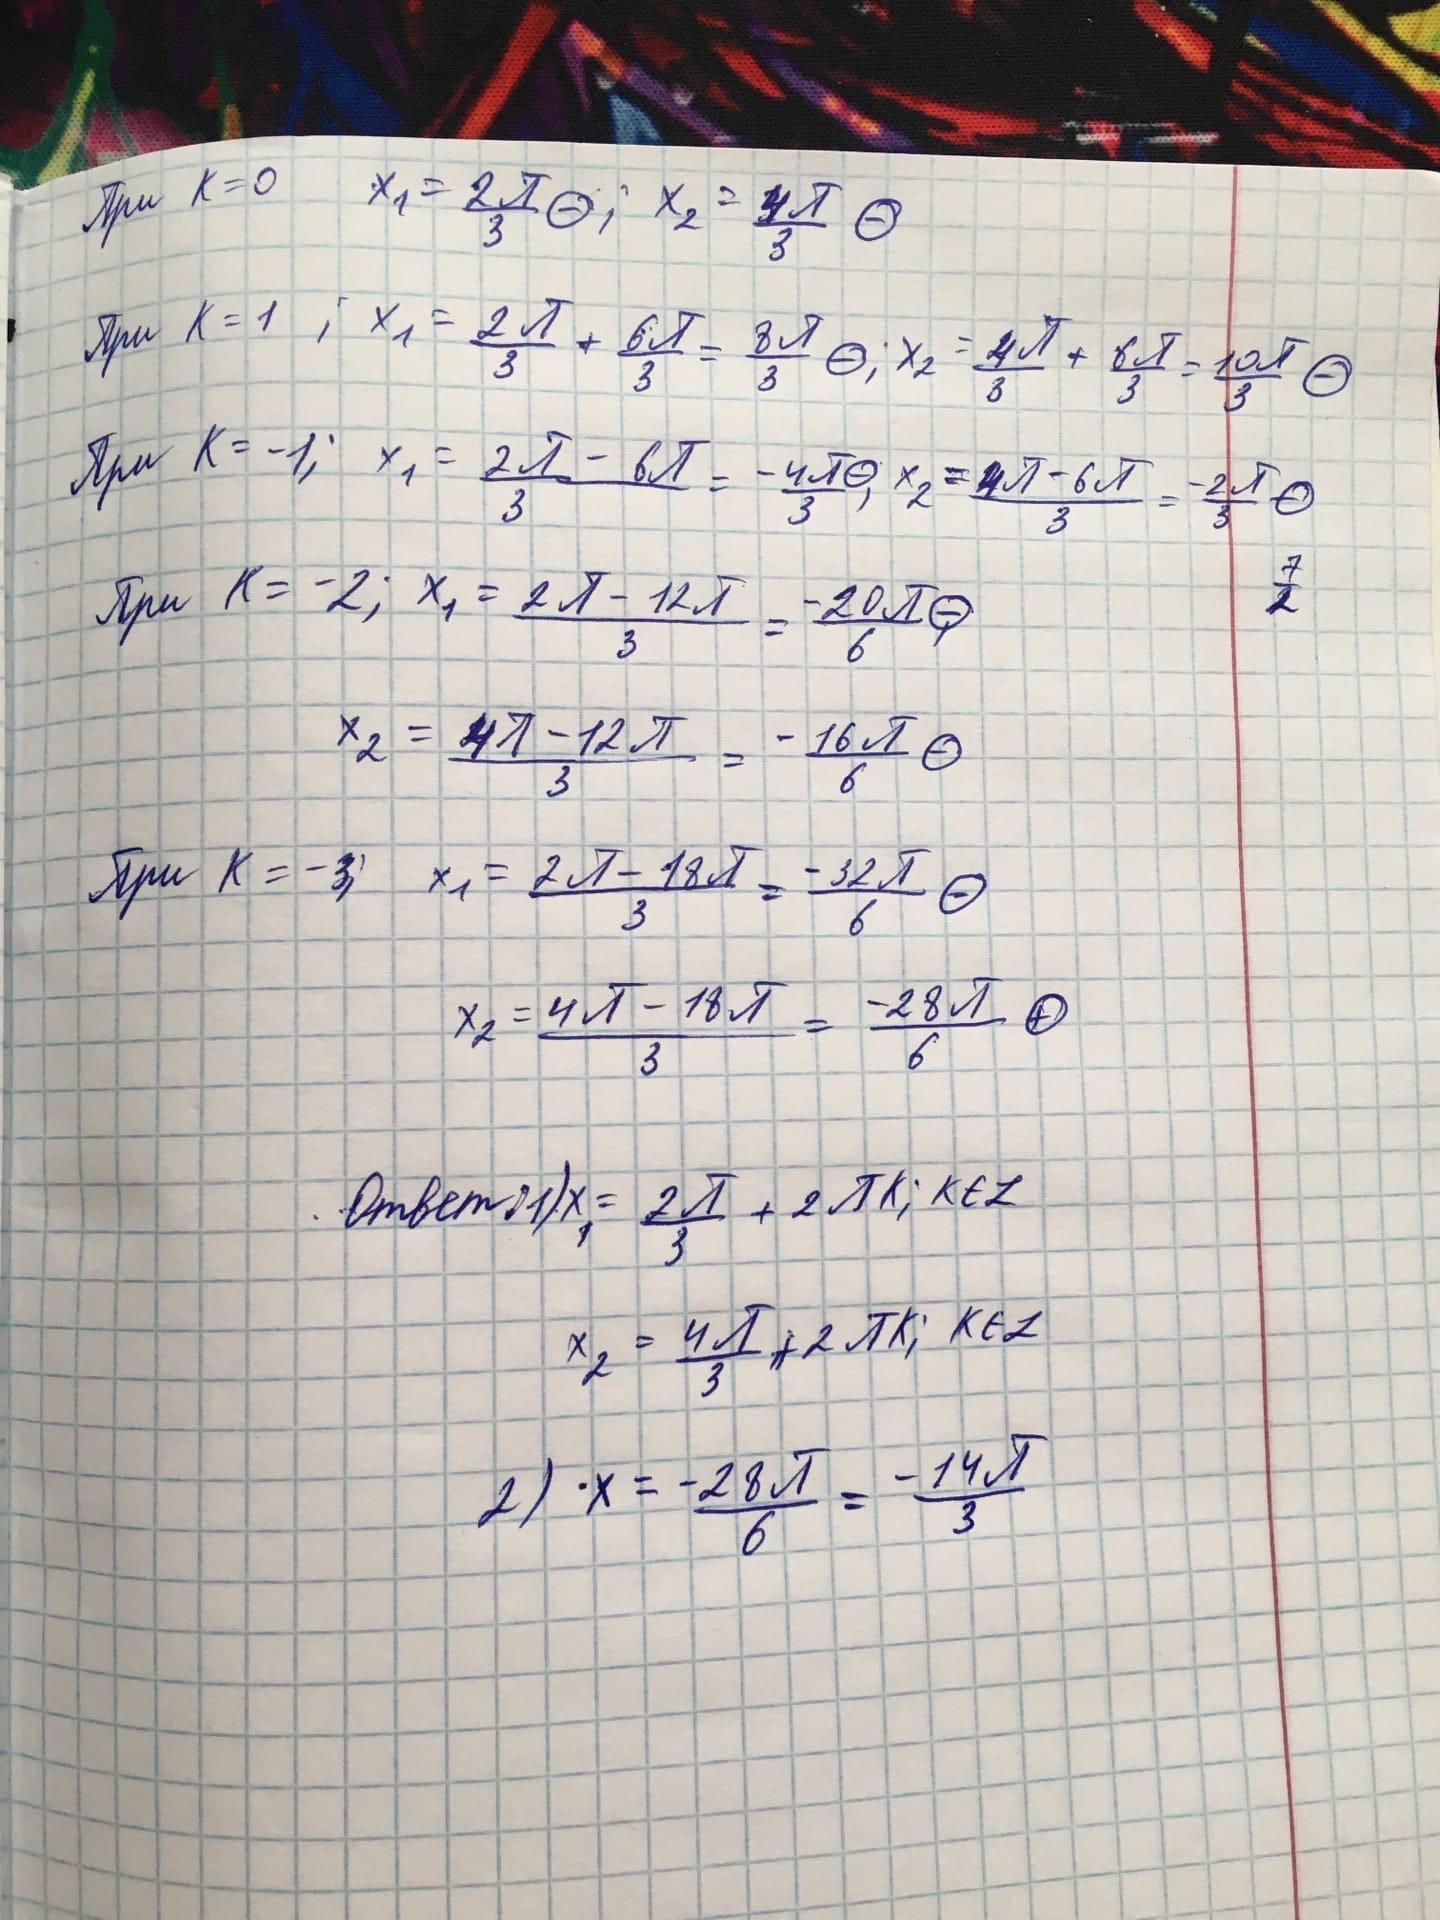 При K=0 x₁ = 2π/3 ⊖; x₂ = 4π/3 ⊖
При K=1; x₁ = 2π/3 + 6π/3 = 8π/3 ⊖; x₂ = 4π/3 + 6π/3 = 10π/3 ⊖
При K=-1; x₁ = (2π-6π)/3 = -4π/3 ⊖; x₂ = (4π-6π)/3 = -2π/3 ⊖
7/2
При K=-2; x₁ = (2π-12π)/3 = -20π/6 ⊖,
x₂ = (4π-12π)/3 = -16π/6 ⊖
При K=-3; x₁ = (2π-18π)/3 = -32π/6 ⊖
x₂ = (4π-18π)/3 = -28π/6 ⊕
Ответ: 1) x₁ = 2π/3 + 2πK; K∈Z
x₂ = 4π/3 + 2πK; K∈Z
2) ·x = -28π/6 = -14π/3